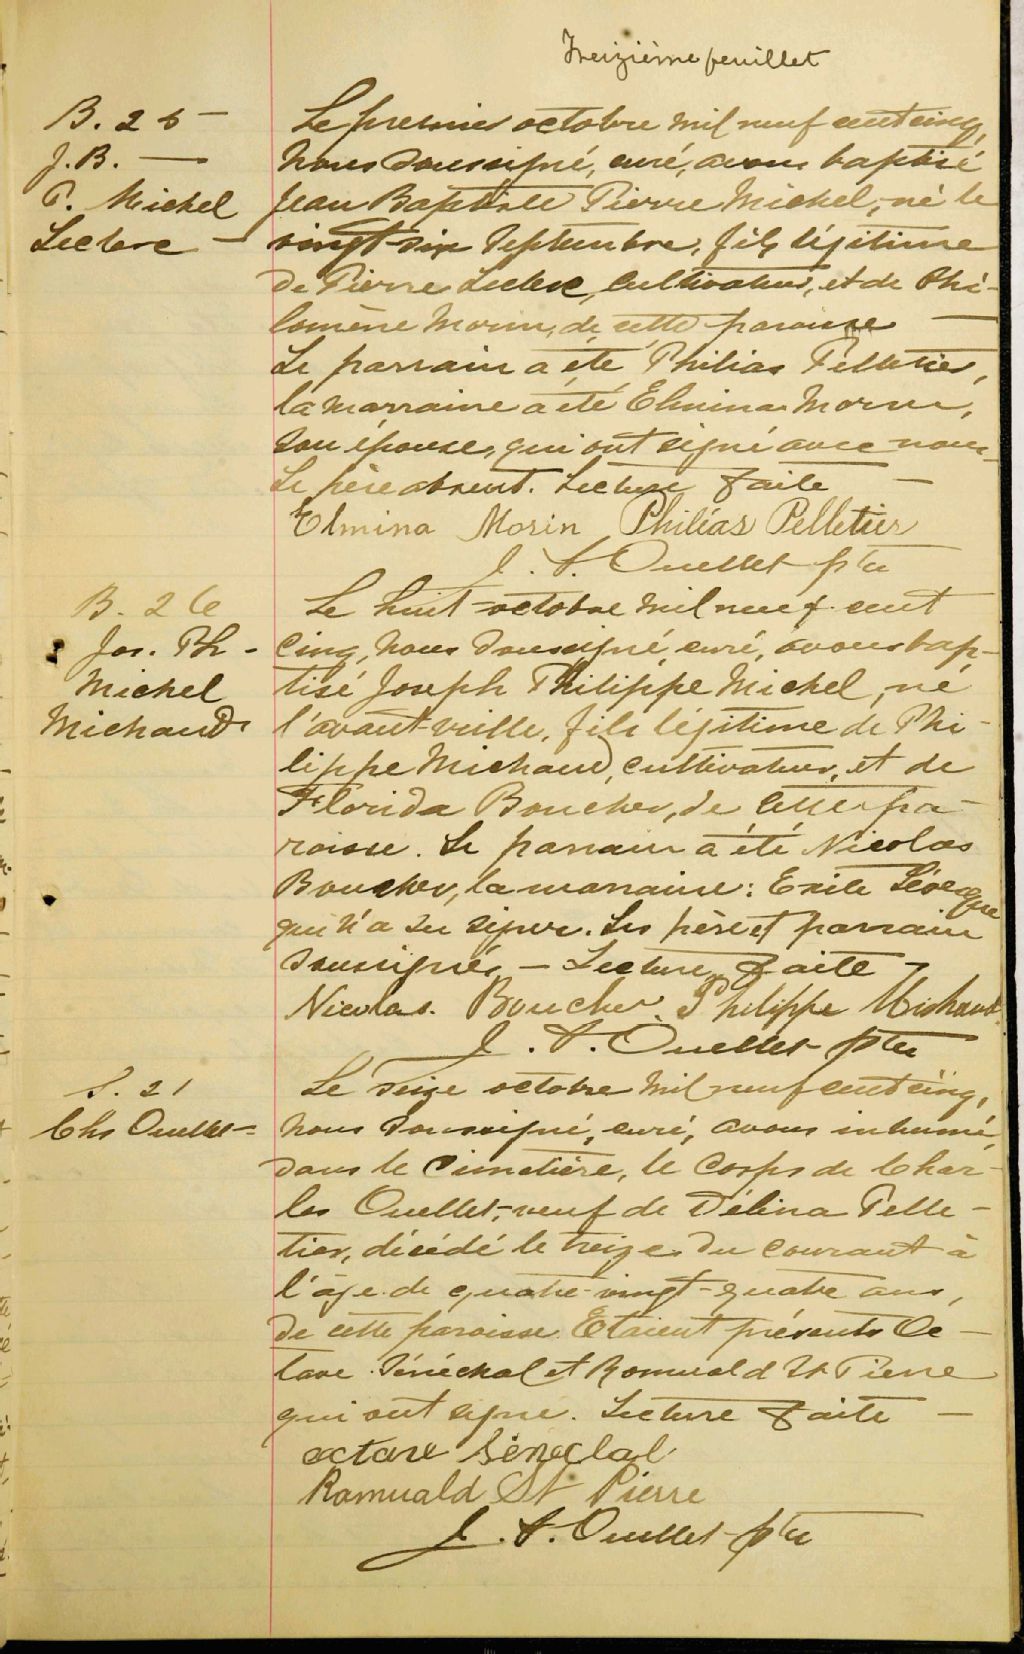 Treizième feuillet
B. 25 –
J.B. —
P. Michel
Leclerc –
Le premier octobre mil neuf cent cinq,
nous soussigné, curé, avons baptisé
Jean Baptiste Pierre Michel, né le
vingt-six septembre, fils légitime
de Pierre Leclerc, cultivateur, et de Phi-
lomène Morin, de cette paroisse —
Le parrain a été Philias Pelletier,
la marraine a été Elmina Morin,
son épouse, qui ont signé avec nous.
Le père absent. Lecture faite —
Elmina Morin Philias Pelletier
J. A. Ouellet ptre
B. 26
Jos. Ph -
Michel
Michaud
Le huit octobre mil neuf cent
cinq, nous soussigné, curé, avons bap-
tisé Joseph Philippe Michel, né
l'avant-veille, fils légitime de Phi-
lippe Michaud, cultivateur, et de
Florida Boucher, de cette pa-
roisse. Le parrain a été Nicolas
Boucher, la marraine: Exile Lévesque
qui n'a su signer. Les père et parrain
soussignés. – Lecture faite –
Nicolas. Boucher. Philippe Michaud.
J. A. Ouellet ptre
S. 21
Chs Ouellet –
Le seize octobre mil neuf cent cinq,
nous soussigné, curé, avons inhumé,
dans le cimetière, le corps de Char-
les Ouellet, veuf de Délina Pelle-
tier, décédé le treize du courant à
l'âge de quatre-vingt-quatre ans,
de cette paroisse. Etaient présents Oc-
tave Sénéchal et Romuald St Pierre
qui ont signé. Lecture faite –
octave Sénéchal
Romuald St Pierre
J. A. Ouellet ptre